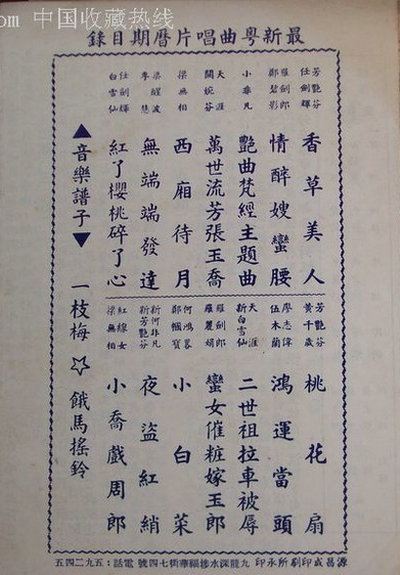 .com 中国收藏热线
最新粵曲唱片曆期目錄
芳艷芬
任劍輝
香草美人
羅劍郎
鄭碧影
情醉嫂蠻腰
艷曲梵經主題曲
天涯
關婉芬
萬世流芳張玉喬
梁無相
西廂待月
梁醒波
李慧
無端端發達
任劍輝
白雪仙
紅了櫻桃碎了心
芳艷芬
黃千歲
桃花扇
廖志偉
伍木蘭
鴻運當頭
天涯
新白雪仙
二世祖拉車被辱
羅劍郎
羅麗娟
蠻女催粧嫁玉郎
鄭幗寶
小白菜
新何非凡
新芳艷芬
夜盜紅綃
紅線女
梁無相
小喬戲周郎
▲音樂譜子▼ 一枝梅 ☆ 餓馬搖鈴
源昌成印刷所承印 九龍深水埗福華街七四號 電話：五九二四五